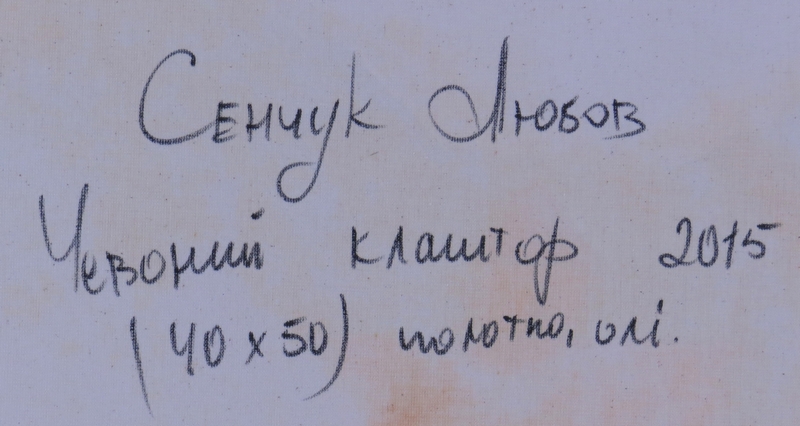 Сенчук Любов
Чевоний кляштор 2015
(40 х 50) полотно, олі.